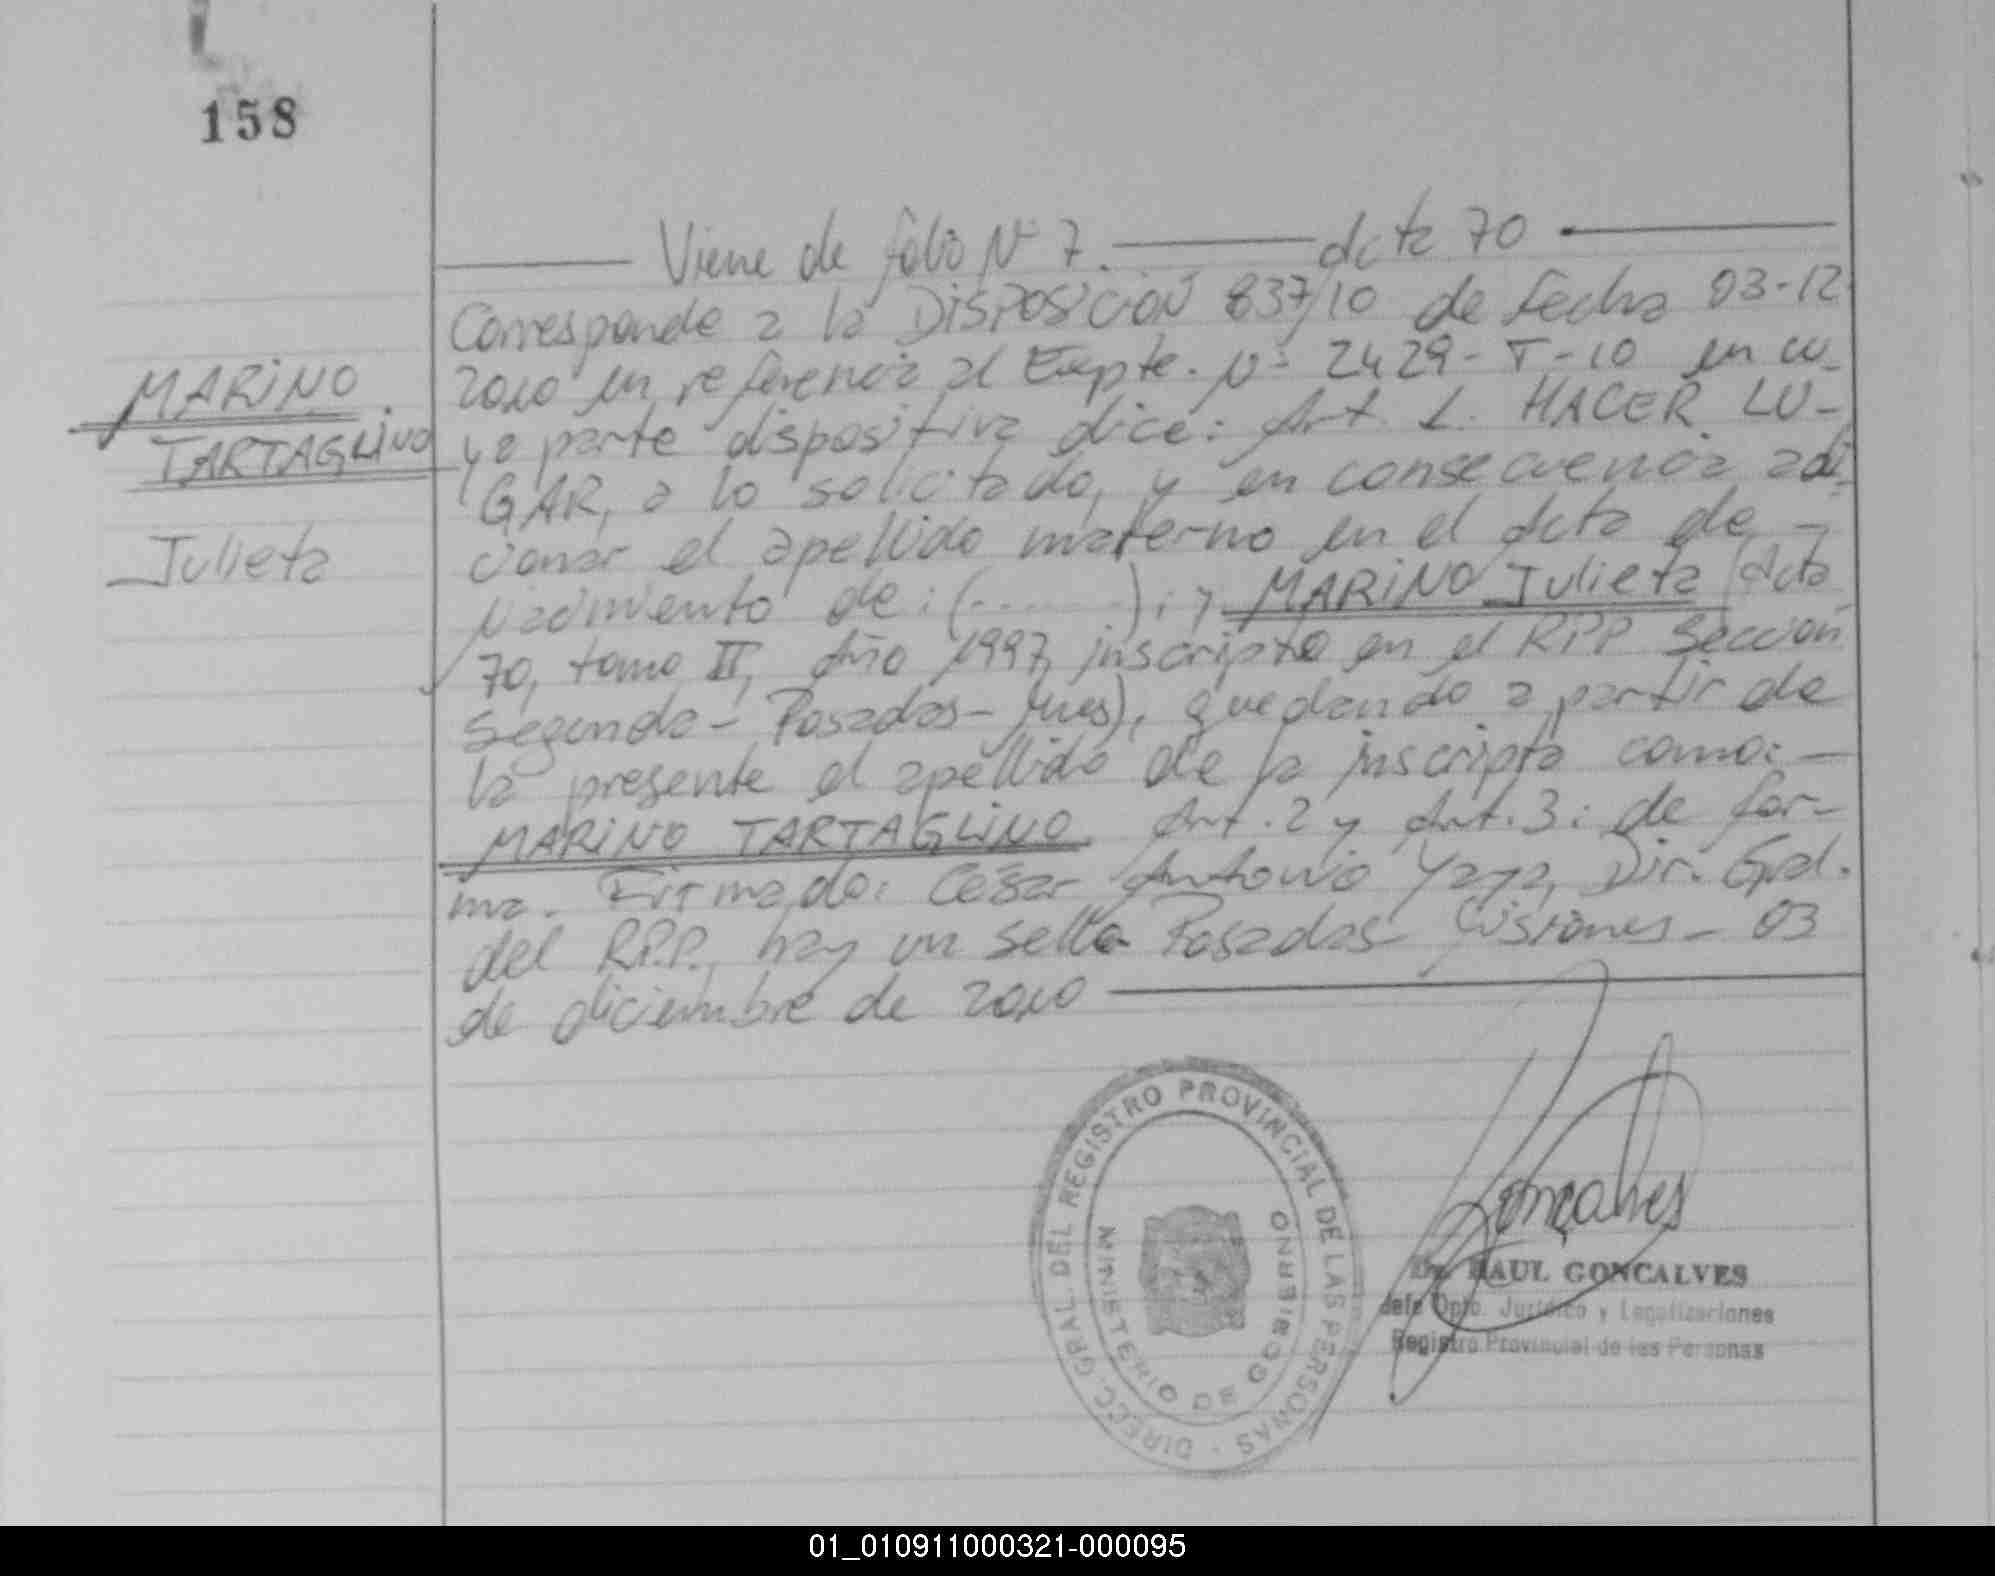 158
Viene de folio Nº 7. Acta 70
Corresponde a la DISPOSICIÓN 837/10 de fecha 03-12
MARINO
2010 en referencia al Expte. Nº 2429-T-10 en cu-
TARTAGLINO
ya parte dispositiva dice: Art. 1. HACER LU-
GAR, a lo solicitado, y en consecuencia adi-
Julieta
cionar el apellido materno en el Acta de
nacimiento de: (........); y MARINO Julieta (Acta
70, tomo II, Año 1997, inscripto en el RPP Sección
Segunda - Posadas - Mnes), quedando a partir de
la presente el apellido de la inscripta como: -
MARINO TARTAGLINO. Art. 2 y Art. 3: de for-
ma. Firmado: César Antonio Yaya, Dir. Gral.
del R.P.P., hay un sello Posadas Misiones - 03
de diciembre de 2010
DIRECC. GRAL. DEL REGISTRO PROVINCIAL DE LAS PERSONAS
MINISTERIO DE GOBIERNO
Goncalves
Dr. RAUL GONCALVES
Jefe Dpto. Jurídico y Legalizaciones
Registro Provincial de las Personas
01_010911000321-000095